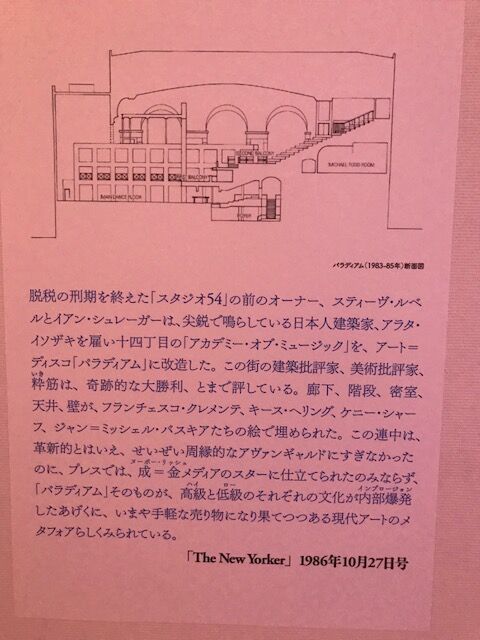 SECOND BALCONY
MICHAEL TODD ROOM
MAIN DANCE FLOOR
FOYER
パラディアム(1983-85年)断面図
脱税の刑期を終えた「スタジオ54」の前のオーナー、スティーヴ・ルベ
ルとイアン・シュレーガーは、尖鋭で鳴らしている日本人建築家、アラタ・
イソザキを雇い十四丁目の「アカデミー・オブ・ミュージック」を、アート=
ディスコ「パラディアム」に改造した。この街の建築批評家、美術批評家、
いき
粋筋は、奇跡的な大勝利、とまで評している。廊下、階段、密室、
天井、壁が、フランチェスコ・クレメンテ、キース・ヘリング、ケニー・シャー
フ、ジャン=ミッシェル・バスキアたちの絵で埋められた。この連中は、
革新的とはいえ、せいぜい周縁的なアヴァンギャルドにすぎなかった
ヌーボー・リッシュ
のに、プレスでは、成=金メディアのスターに仕立てられたのみならず、
ハイ ロー インプロージョン
「パラディアム」そのものが、高級と低級のそれぞれの文化が内部爆発
したあげくに、いまや手軽な売り物になり果てつつある現代アートのメ
タフォアらしくみられている。
「The New Yorker」 1986年10月27日号